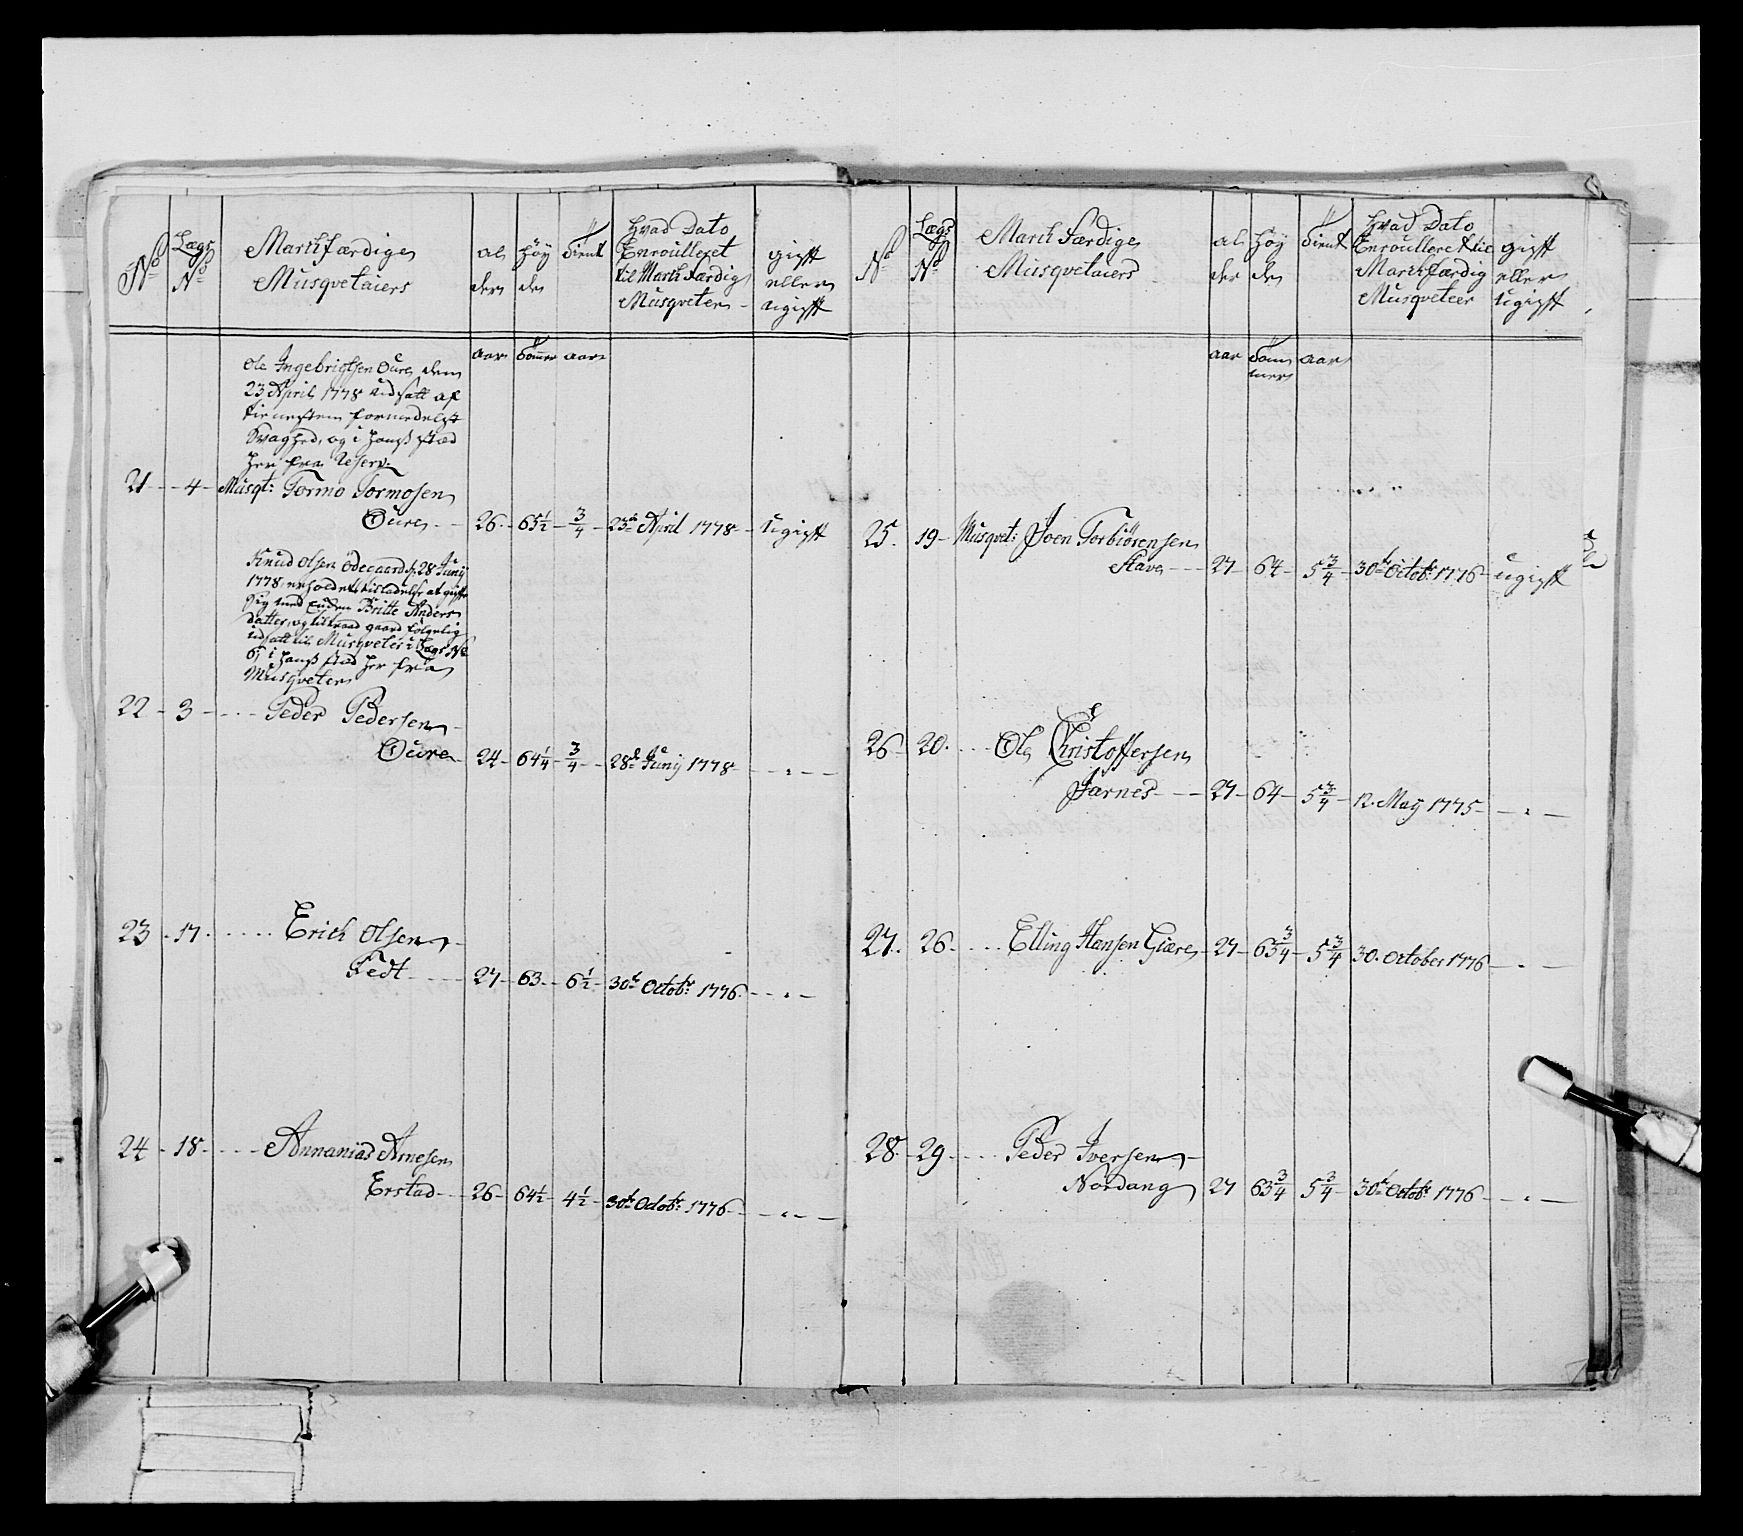 No
Lægs
No
Marchfærdige
Musqvetaiers
al
der
Høy
de
tient
Hvad Dato
Enroulleret
til Marchfærdig
Musqveter
gift
eller
ugift
aar Tommer aar
Ole Ingebrigtsen Oure, dem
23 April 1778 udsatt af
tienesten formedelst
Svaghed, og i hanß stæd
her fra Reserv.
21 - 4 - Musqt: Tormo Tormosen
Oure - 26 - 65½ - ¾ - 23de April 1778 - Ugift
Knud Olsen Ödegaard d. 28 Junÿ
1778, erholdet tilladelse at gifte
sig med Enken Britte Anders
datter, og tiltraad gaard følgelig
udsatt til Musqveter i Lægs No
6, i hanß stæd her fra
Musqveter
22 - 3 - Peder Pedersen
Oure - 24 - 64¼ - ¾ - 28de Junÿ 1778 - " -
23 - 17 - Erich Olsen
Tedt - 27 - 63 - 6½ - 30te Octobr: 1776 - " -
24 - 18 - Annanias Arnesen
Erstad - 26 - 64½ - 4½ - 30te Octobr: 1776 - " -
No
Lægs
No
March Færdige
Musqvetaiers
al
der
høy
de
tient
Hvad Dato
Enroulleret til
Marchfærdig
Musqveteer
gift
eller
ugift
aar Tom
mer aar
25. 19 - Musqvet: Joen Torbiörensen
Stave - 27 - 64 - 5¾ - 30te Octobr: 1776 - ugift
26 - 20. Ole Christoffersen
Jarnes - 27 - 64 - 5¾ - 12. Maÿ 1775 - " -
27. 26. Elling Hansen Giære - 27 - 63¾ - 5¾ 30. October 1776 - " -
28 - 29 - Peder Iversen
Nordang 27 63¾ 5¾ - 30te Octobr: 1776 - " -